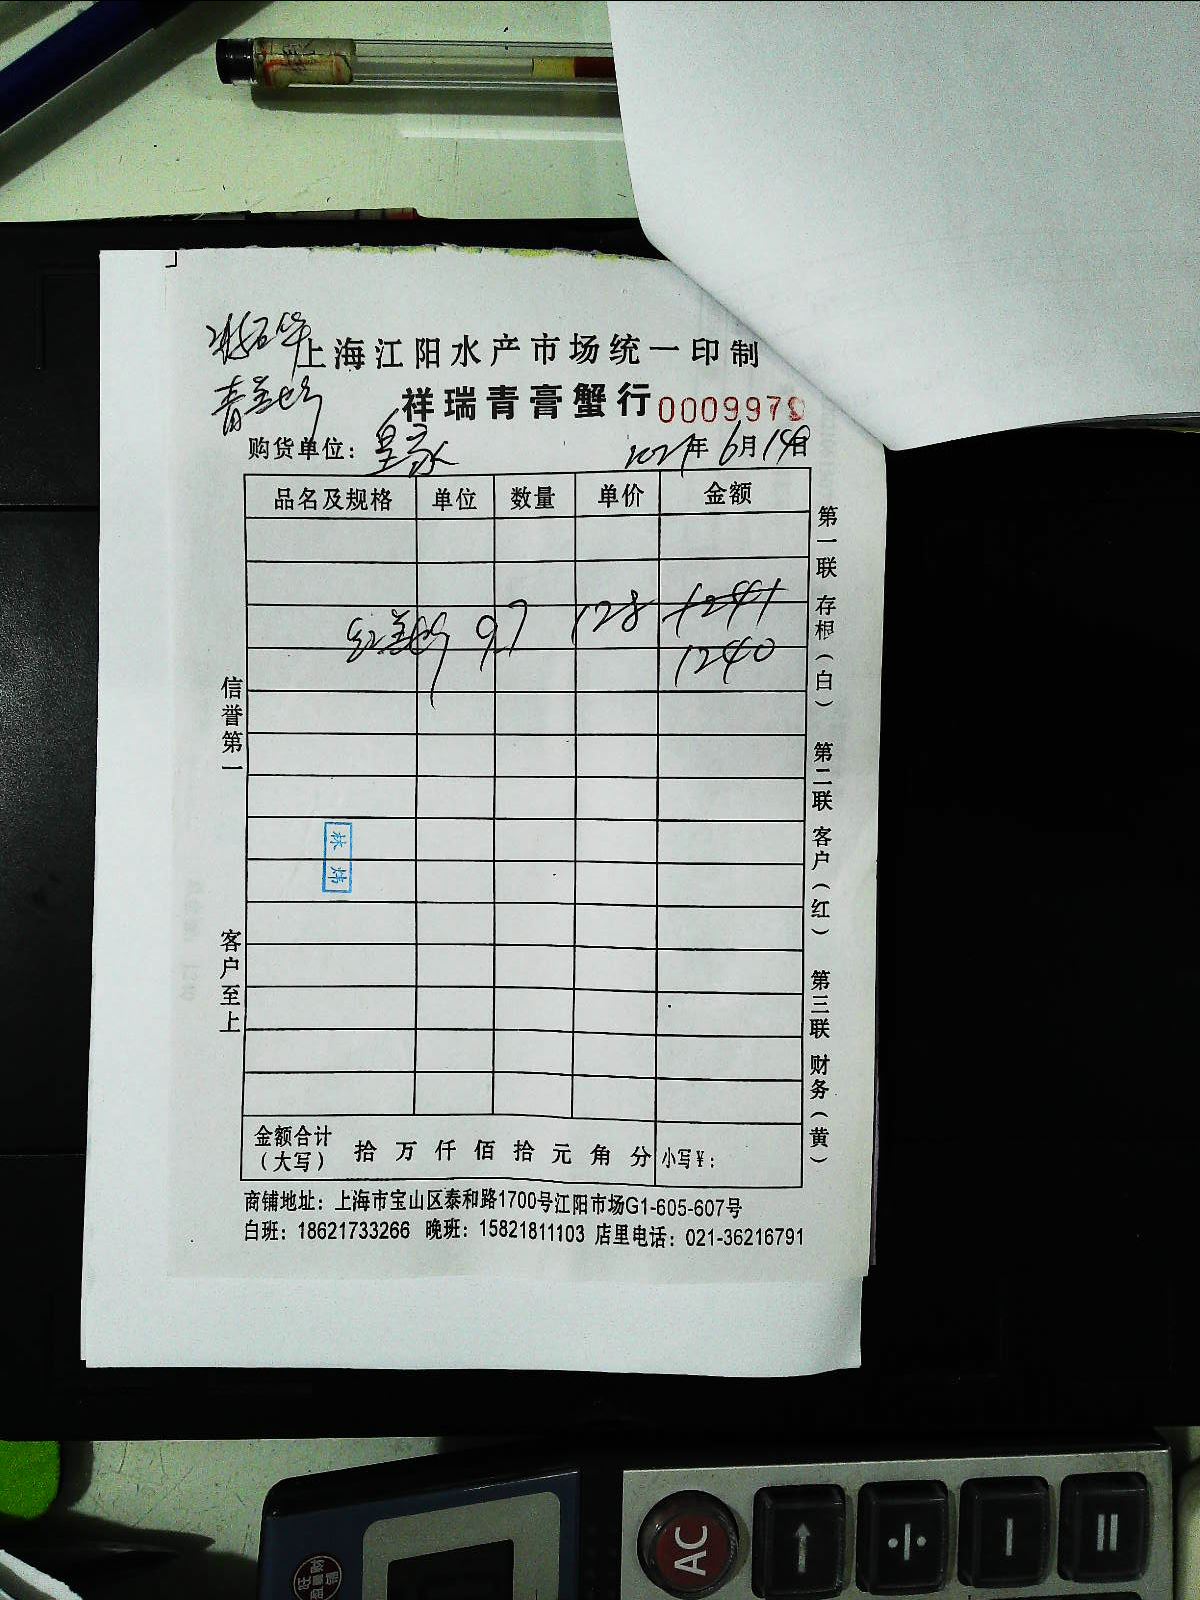 上海江阳水产市场统一印制
祥瑞青膏蟹行 0009979
购货单位：皇家 2021年6月19日
品名及规格 单位 数量 单价 金额
1241
9.7 128
1240
信誉第一
客户至上
林炜
第一联 存根（白） 第二联 客户（红） 第三联 财务（黄）
金额合计（大写） 拾 万 仟 佰 拾 元 角 分 小写￥：
商铺地址：上海市宝山区泰和路1700号江阳市场G1-605-607号
白班：18621733266 晚班：15821811103 店里电话：021-36216791
AC
↑ ÷ − =